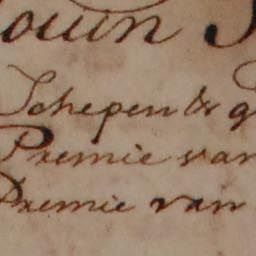 ouin
Schepen &
Premie van
Premie van